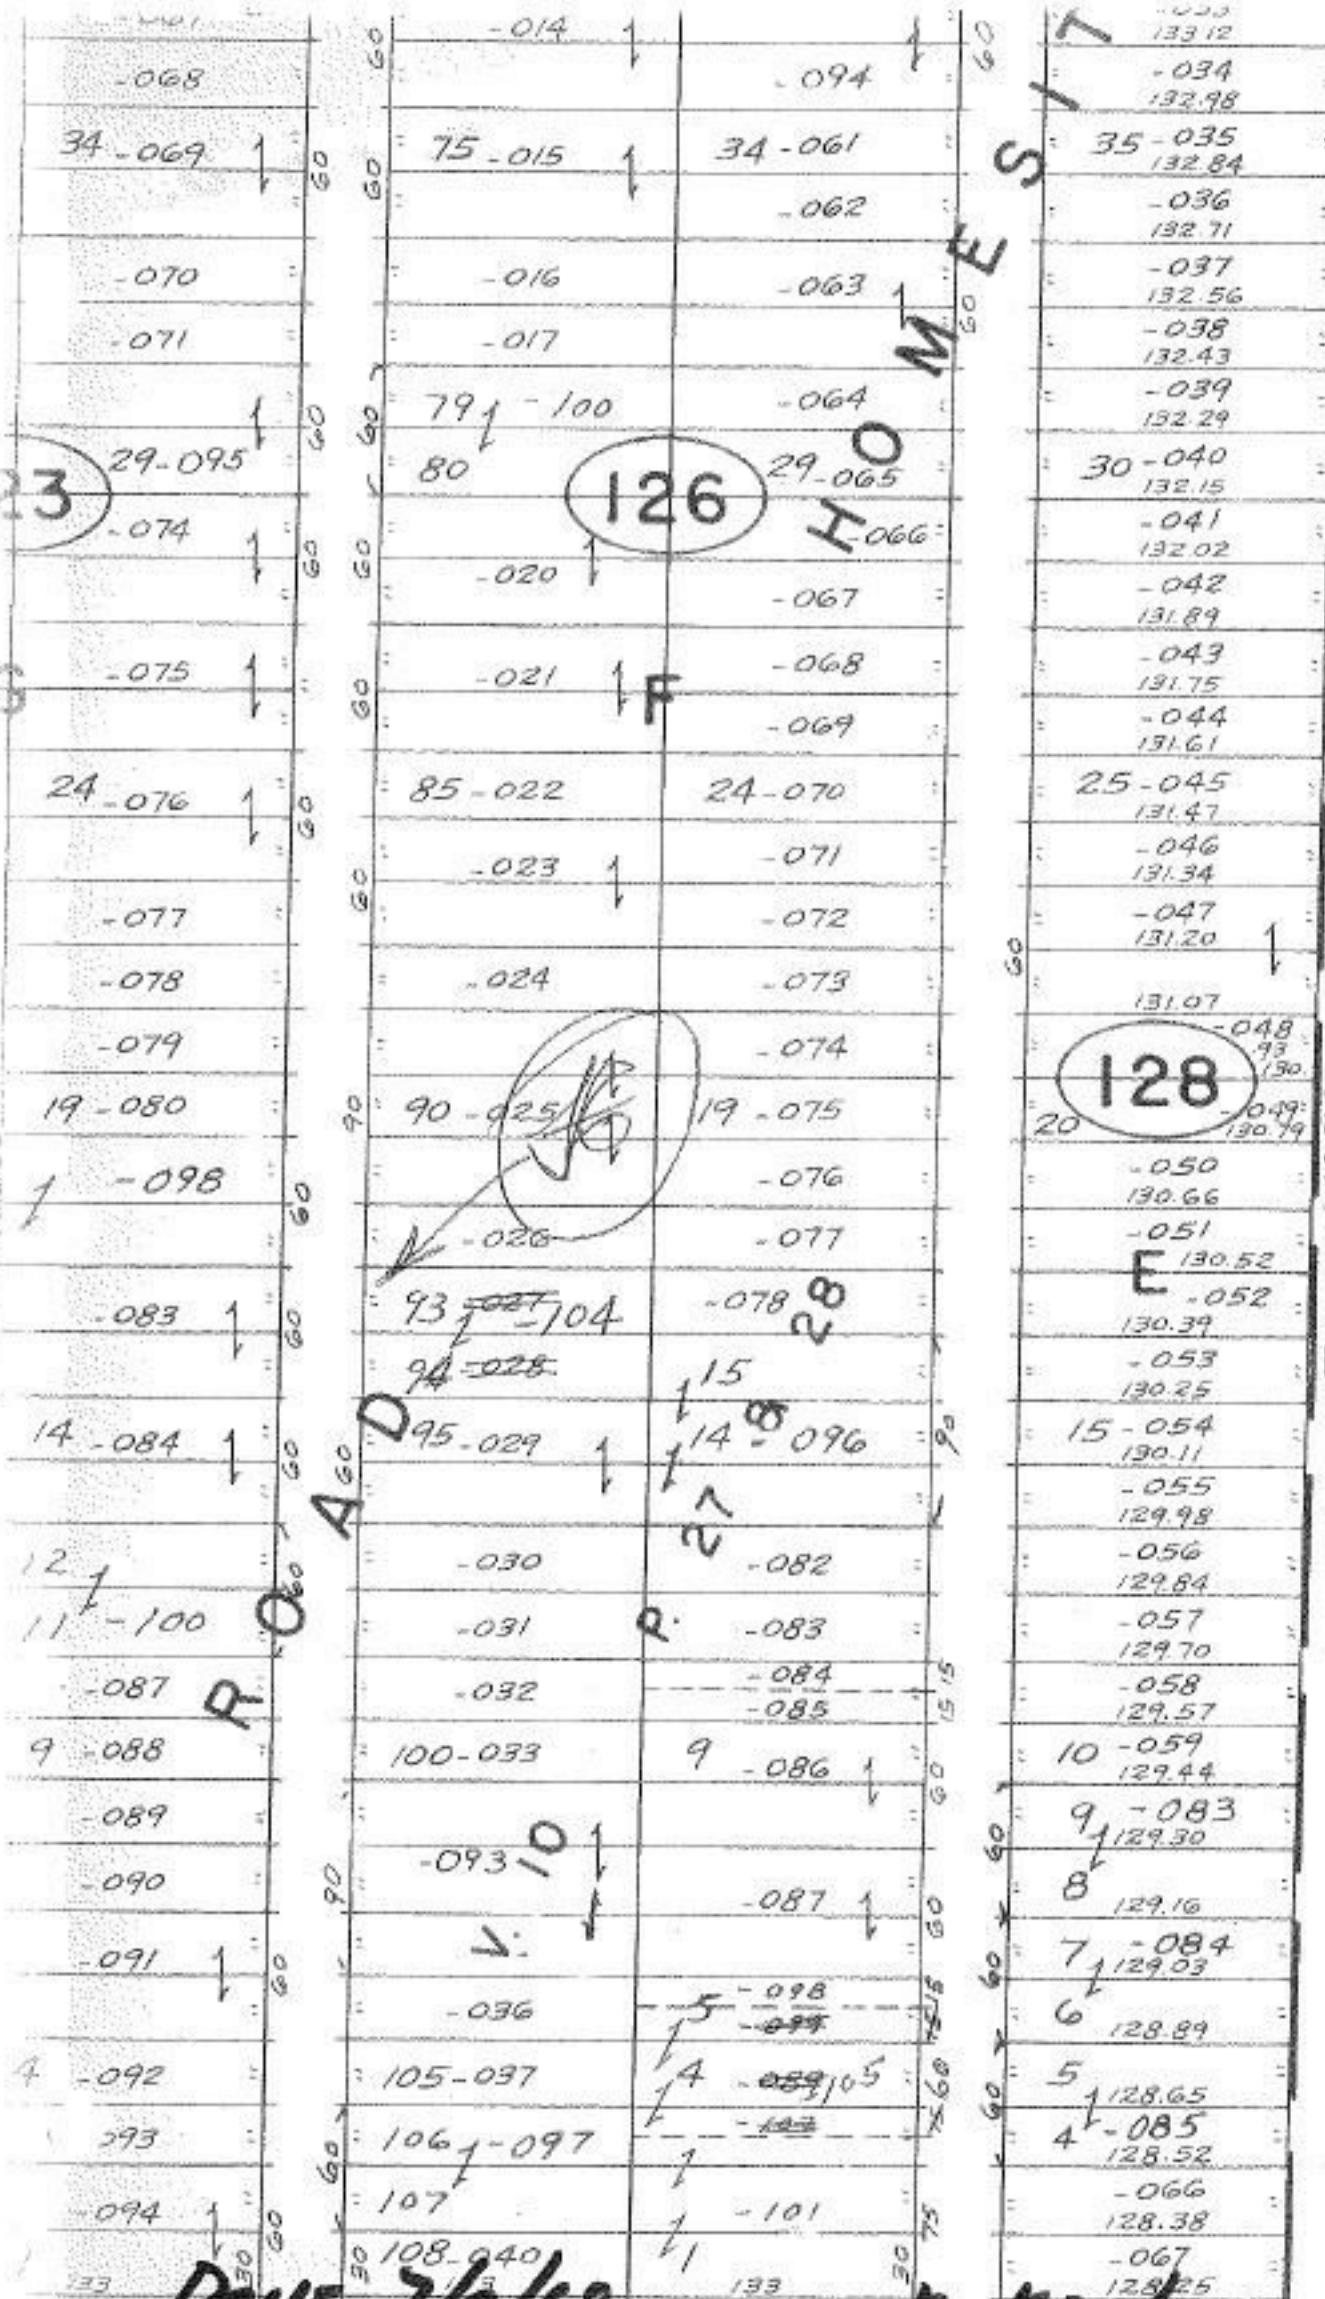 -068
34 -069
-070
-071
29-095
23
-074
-075
24 -076
-077
-078
-079
19 -080
-098
-083
14 -084
12
11 -100
-087
9 -088
-089
-090
-091
4 -092
093
-094
133
60
60
60
60
60
60
60
60
60
60
60
30
-014
75 -015
-016
-017
79 -100
80
126
-020
-021
F
85 -022
-023
-024
90 -025
-026
93 -027 -104
94 -028
95 -029
-030
-031
-032
100-033
-093
-036
105-037
106 -097
107
108-040
60
60
60
60
60
60
90
60
90
60
30
ROAD
P.V. 10
P. 27 8 28
-094
34 -061
-062
-063
-064
29-065
-066
-067
-068
-069
24-070
-071
-072
-073
-074
19 -075
-076
-077
-078
15
14 - 096
-082
-083
-084
-085
9 -086
-087
-098
5 -099
4 -089 105
-102
-101
1
133
60
60
90
15
15
60
60
15
60
75
30
HOMESIT
13312
-034
132.98
35 -035
132.84
-036
132.71
-037
132.56
-038
132.43
-039
132.29
30 -040
132.15
-041
132.02
-042
131.89
-043
131.75
-044
131.61
25 -045
131.47
-046
131.34
-047
131.20
60
131.07
-048
.93
130.
128
-049
20 130.79
-050
130.66
-051
E 130.52
-052
130.39
-053
130.25
15 -054
130.11
-055
129.98
-056
129.84
-057
129.70
-058
129.57
10 -059
129.44
9 -083
129.30
60
8
129.16
7 -084
129.03
60
6
128.89
5
128.65
60
4 -085
128.52
-066
128.38
-067
128.25